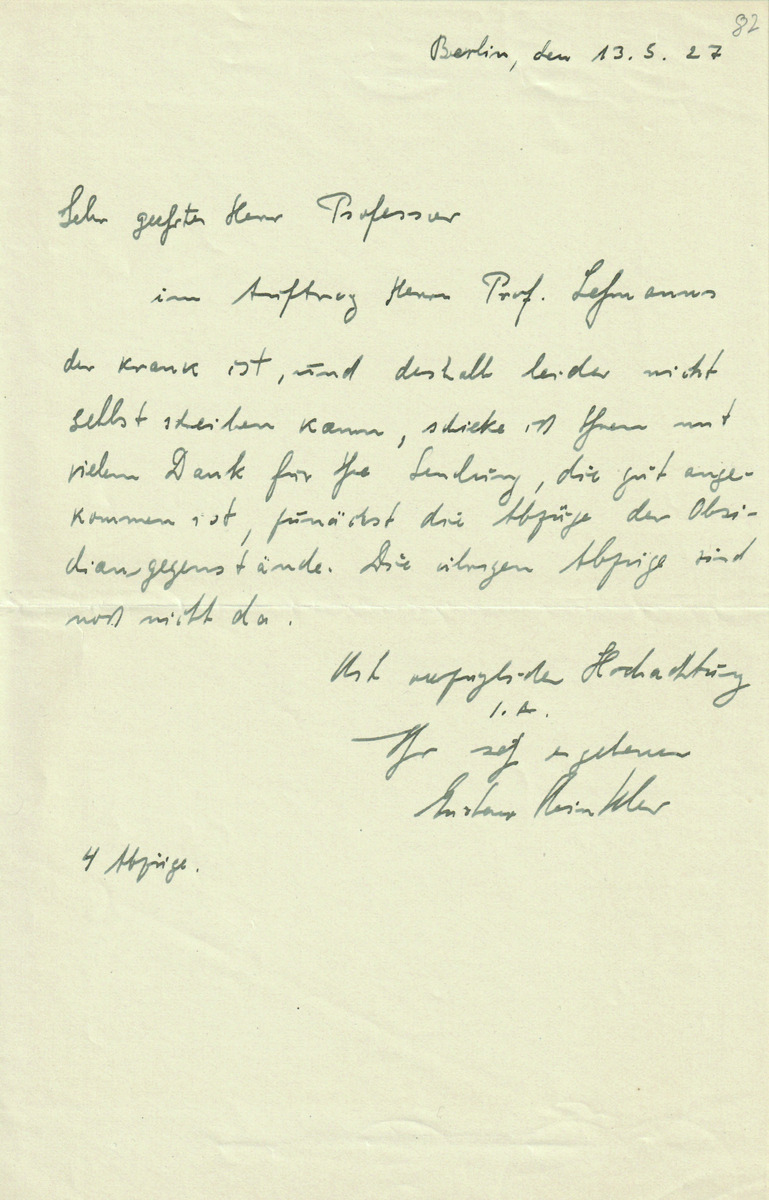 82
Berlin, den 13. 5. 27
Sehr geehrter Herr Professor
im Auftrag Herrn Prof. Lehmanns
der krank ist, und deshalb leider nicht
selbst schreiben kann, schicke ich Ihnen mit
vielem Dank für Ihre Sendung, die gut ange-
kommen ist, zunächst die Abzüge der Obsi-
diangegenstände. Die übrigen Abzüge sind
noch nicht da.
Mit vorzüglicher Hochachtung
I. A.
Ihr sehr ergebener
Gustav
4 Abzüge.